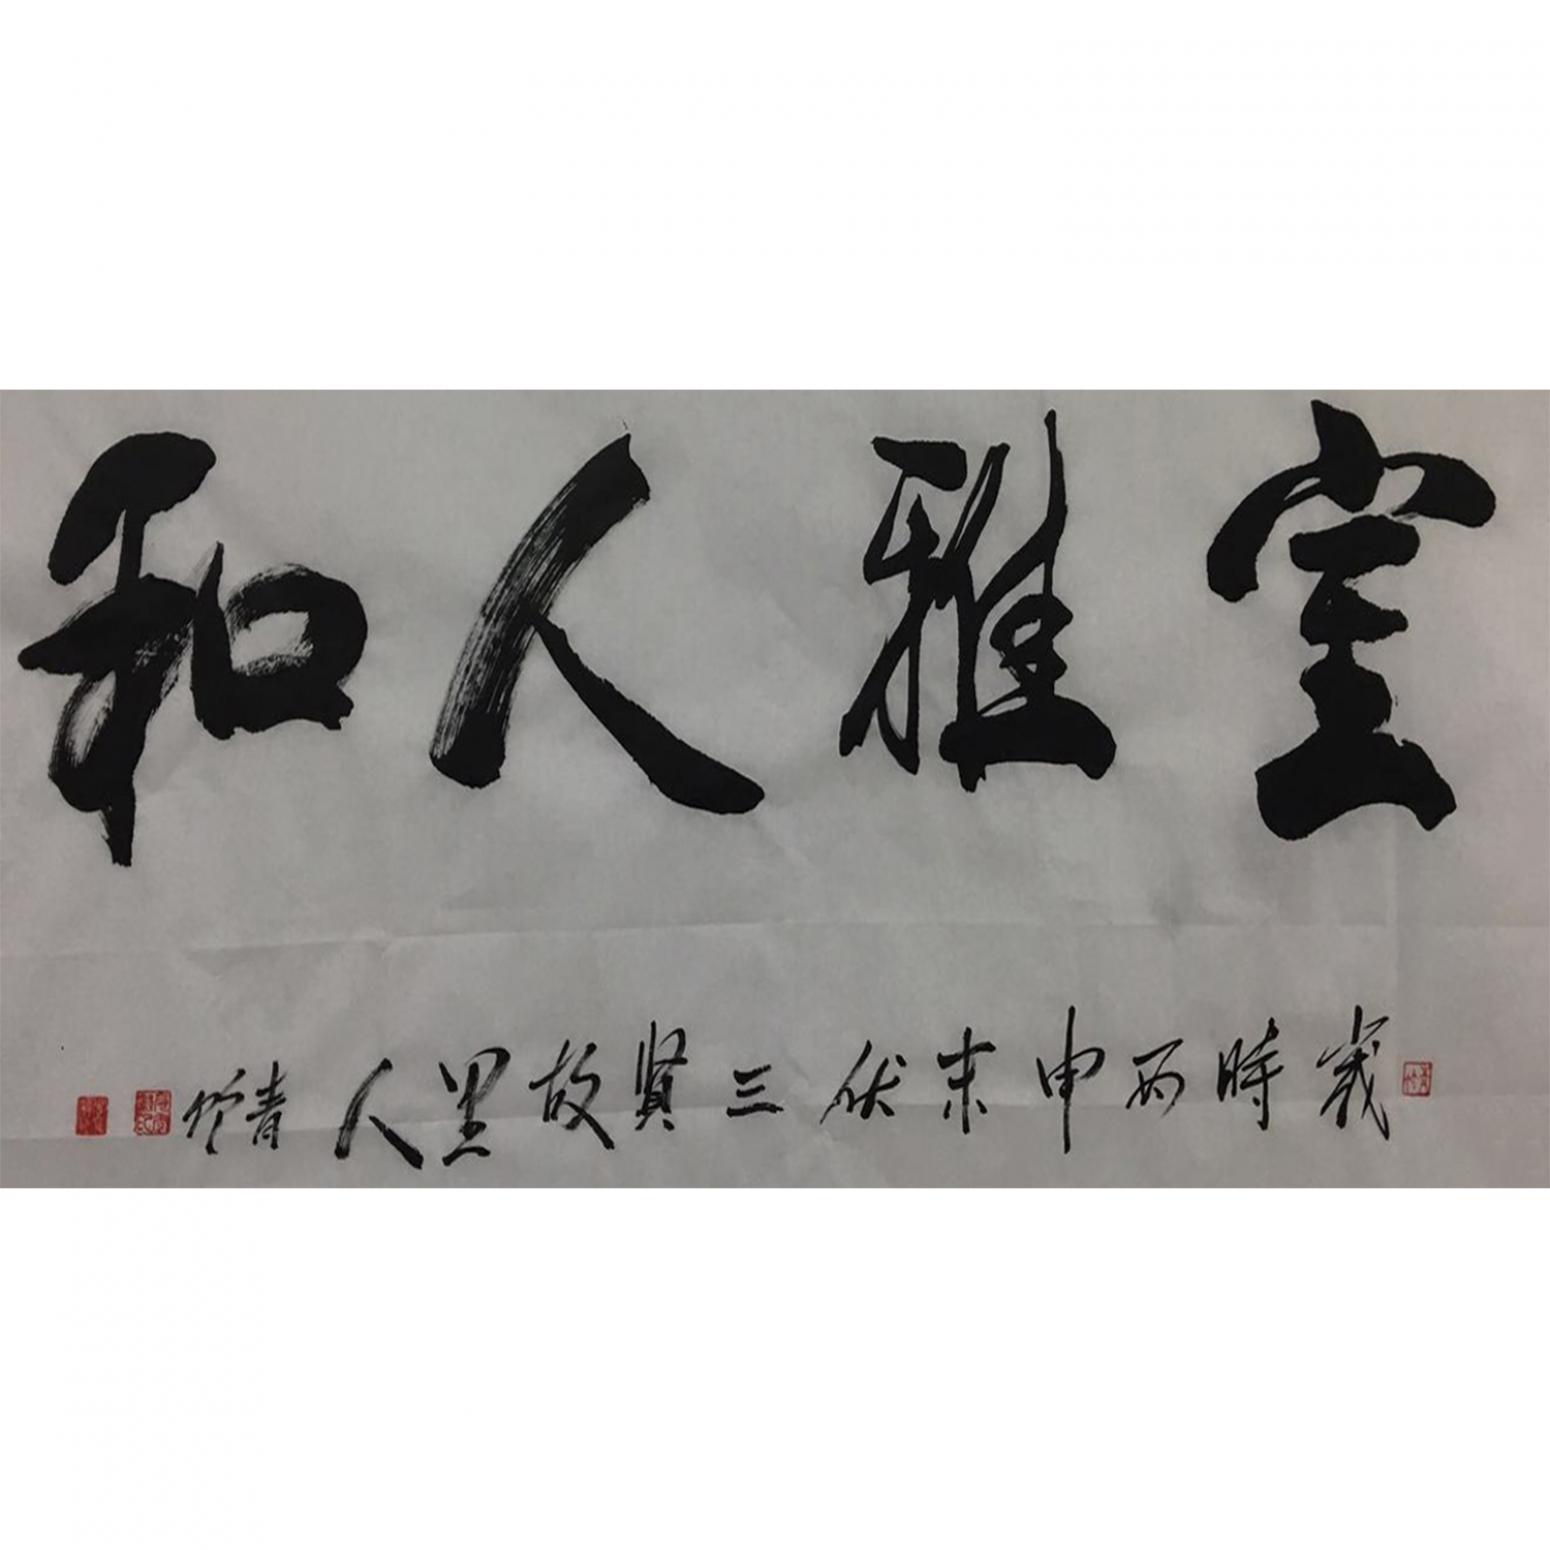 室雅人和
歲時丙申末伏三賢故里人青竹